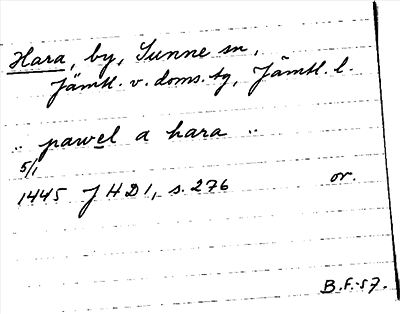 Hara, by, Sunne sn,
Jämtl. v. doms. tg, Jämtl. l.
.. pawel a hara ..
5/1
1445 JHD1, s. 276 or.
B.F.-57.